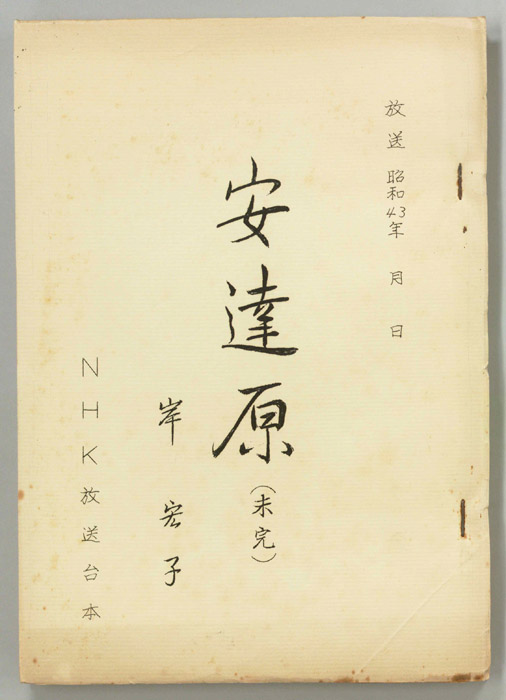 放送 昭和43年 月 日
安達原
(未完)
岸 宏子
NHK放送台本